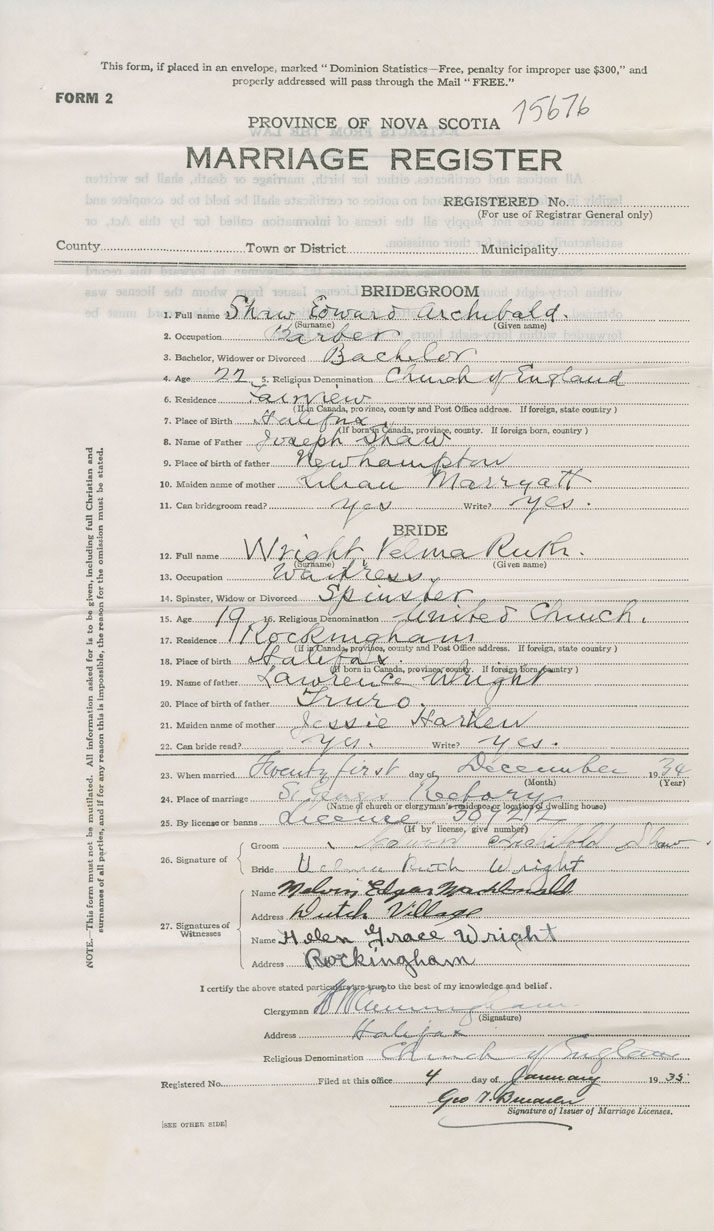 This form, if placed in an envelope, marked " Dominion Statistics—Free, penalty for improper use $300," and
properly addressed will pass through the Mail " FREE."
FORM 2
15676
PROVINCE OF NOVA SCOTIA
MARRIAGE REGISTER
REGISTERED No.
(For use of Registrar General only)
County Town or District Municipality
BRIDEGROOM
1. Full name Shaw Edward Archibald.
(Surname) (Given name)
2. Occupation Barber
3. Bachelor, Widower or Divorced Bachelor
4. Age 22 5. Religious Denomination Church of England
6. Residence Fairview
(If in Canada, province, county and Post Office address. If foreign, state country )
7. Place of Birth Halifax.
(If born in Canada, province, county. If foreign born, country)
8. Name of Father Joseph Shaw
9. Place of birth of father Newhampton
10. Maiden name of mother Lilian Marryatt
11. Can bridegroom read? yes Write? yes.
BRIDE
12. Full name Wright Velma Ruth.
(Surname) (Given name)
13. Occupation Waitress.
14. Spinster, Widow or Divorced Spinster
15. Age 19 16. Religious Denomination United Church.
17. Residence Rockingham
(If in Canada, province, county and Post Office address. If foreign, state country )
18. Place of birth Halifax.
(If born in Canada, province, county. If foreign born, country )
19. Name of father Lawrence Wright
20. Place of birth of father Truro.
21. Maiden name of mother Jessie Harlen
22. Can bride read? yes. Write? yes.
23. When married Twenty first day of December 19 34
(Month) (Year)
24. Place of marriage Rectory
(Name of church or clergyman's residence or location of dwelling house)
25. By license or banns Licence
(If by license, give number)
26. Signature of
Groom Edward Archibald Shaw
Bride Velma Ruth Wright
27. Signatures of Witnesses
Name Melvin Edgar MacDonald
Address Dutch Village
Name Helen Grace Wright
Address Rockingham
I certify the above stated particulars are true to the best of my knowledge and belief.
Clergyman
(Signature)
Address Halifax
Religious Denomination Church of England
Registered No. Filed at this office 4 day of January 19 35
Geo
Signature of Issuer of Marriage Licenses.
[SEE OTHER SIDE]
NOTE.—This form must not be mutilated. All information asked for is to be given, including full Christian and
surnames of all parties, and if for any reason this is impossible, the reason for the omission must be stated.